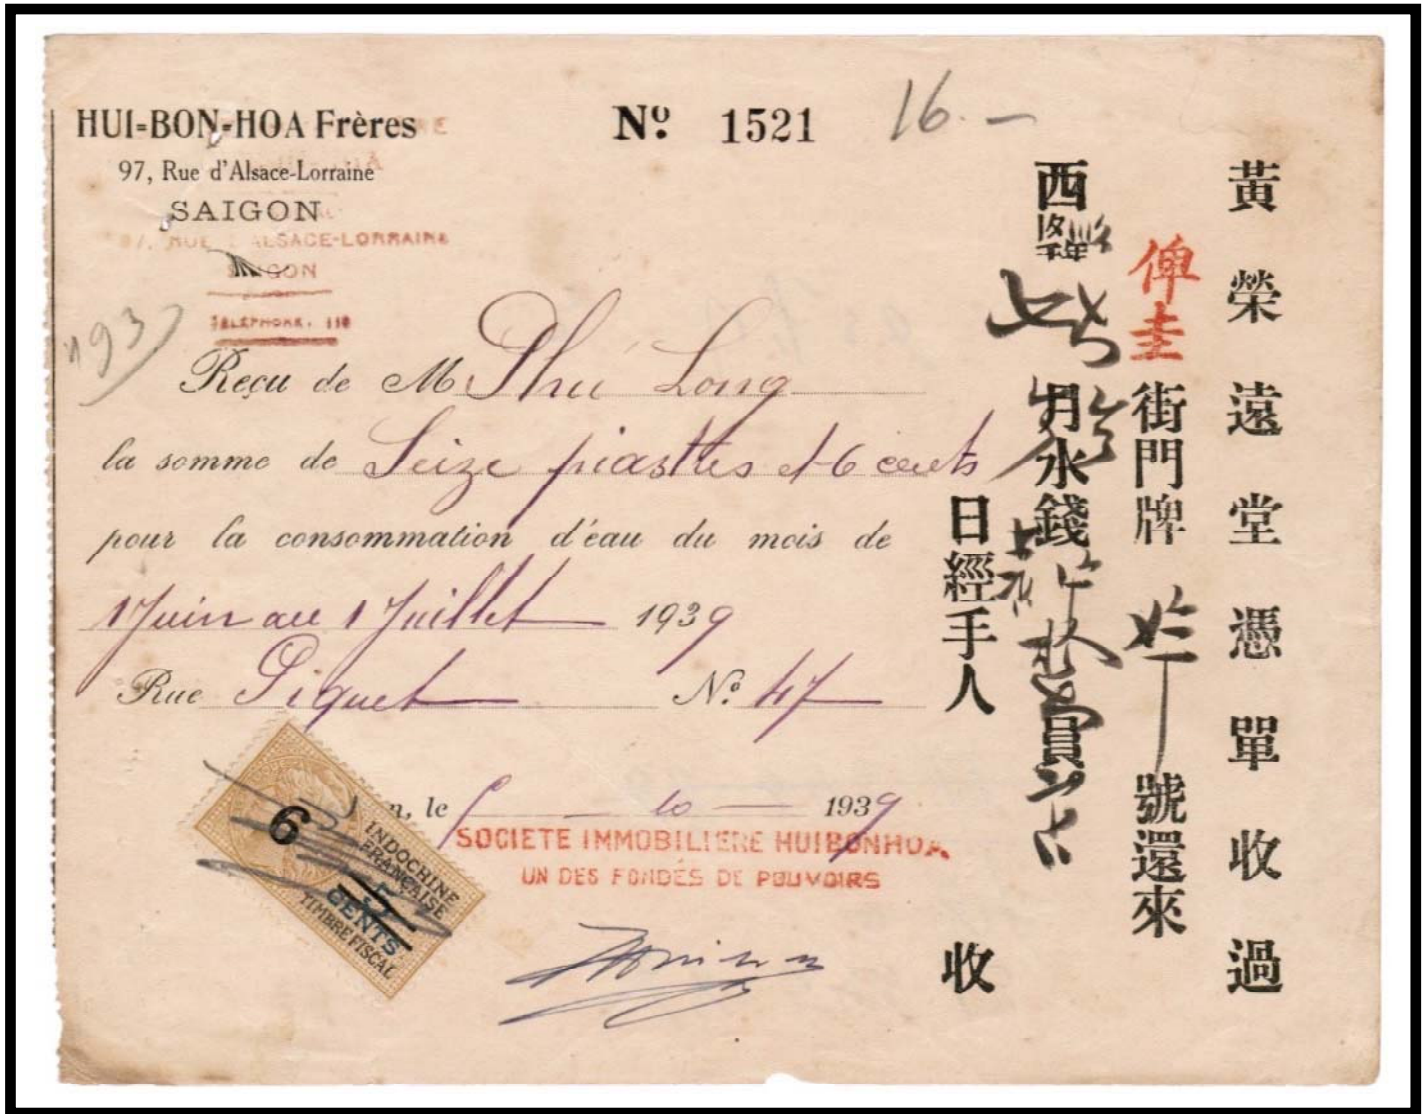 HUI=BON=HOA Frères
97, Rue d'Alsace-Lorraine
SAIGON
RUE D'ALSACE-LORRAINE
SAIGON
TELEPHONE. 110
Nº 1521
16.-
Reçu de M Phú Long
la somme de Seize piastres 16 cents
pour la consommation d'eau du mois de
1 Juin au 1 Juillet 1939
Rue Piquet Nº 47
le 10 1939
SOCIETE IMMOBILIERE HUIBONHOA
UN DES FONDÉS DE POUVOIRS
6
INDOCHINE
FRANÇAISE
5
CENTS
TIMBRE FISCAL
黃榮遠堂憑單收過
俾圭街門牌 號還來
西 月水錢 員
日經手人 收